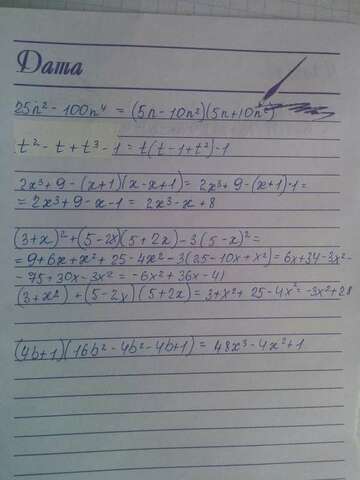 Дата
25n² - 100n⁴ = (5n - 10n²)(5n + 10n²)
t² - t + t³ - 1 = t(t - 1 + t²) - 1
2x³ + 9 - (x + 1)(x - x + 1) = 2x³ + 9 - (x + 1)·1 =
= 2x³ + 9 - x - 1 = 2x³ - x + 8
(3 + x)² + (5 - 2x)(5 + 2x) - 3(5 - x)² =
= 9 + 6x + x² + 25 - 4x² - 3(25 - 10x + x²) = 6x + 34 - 3x² -
- 75 + 30x - 3x² = -6x² + 36x - 41
(3 + x²) + (5 - 2x)(5 + 2x) = 3 + x² + 25 - 4x² = -3x² + 28
(4b + 1)(16b² - 4b² - 4b + 1) = 48x³ - 4x² + 1